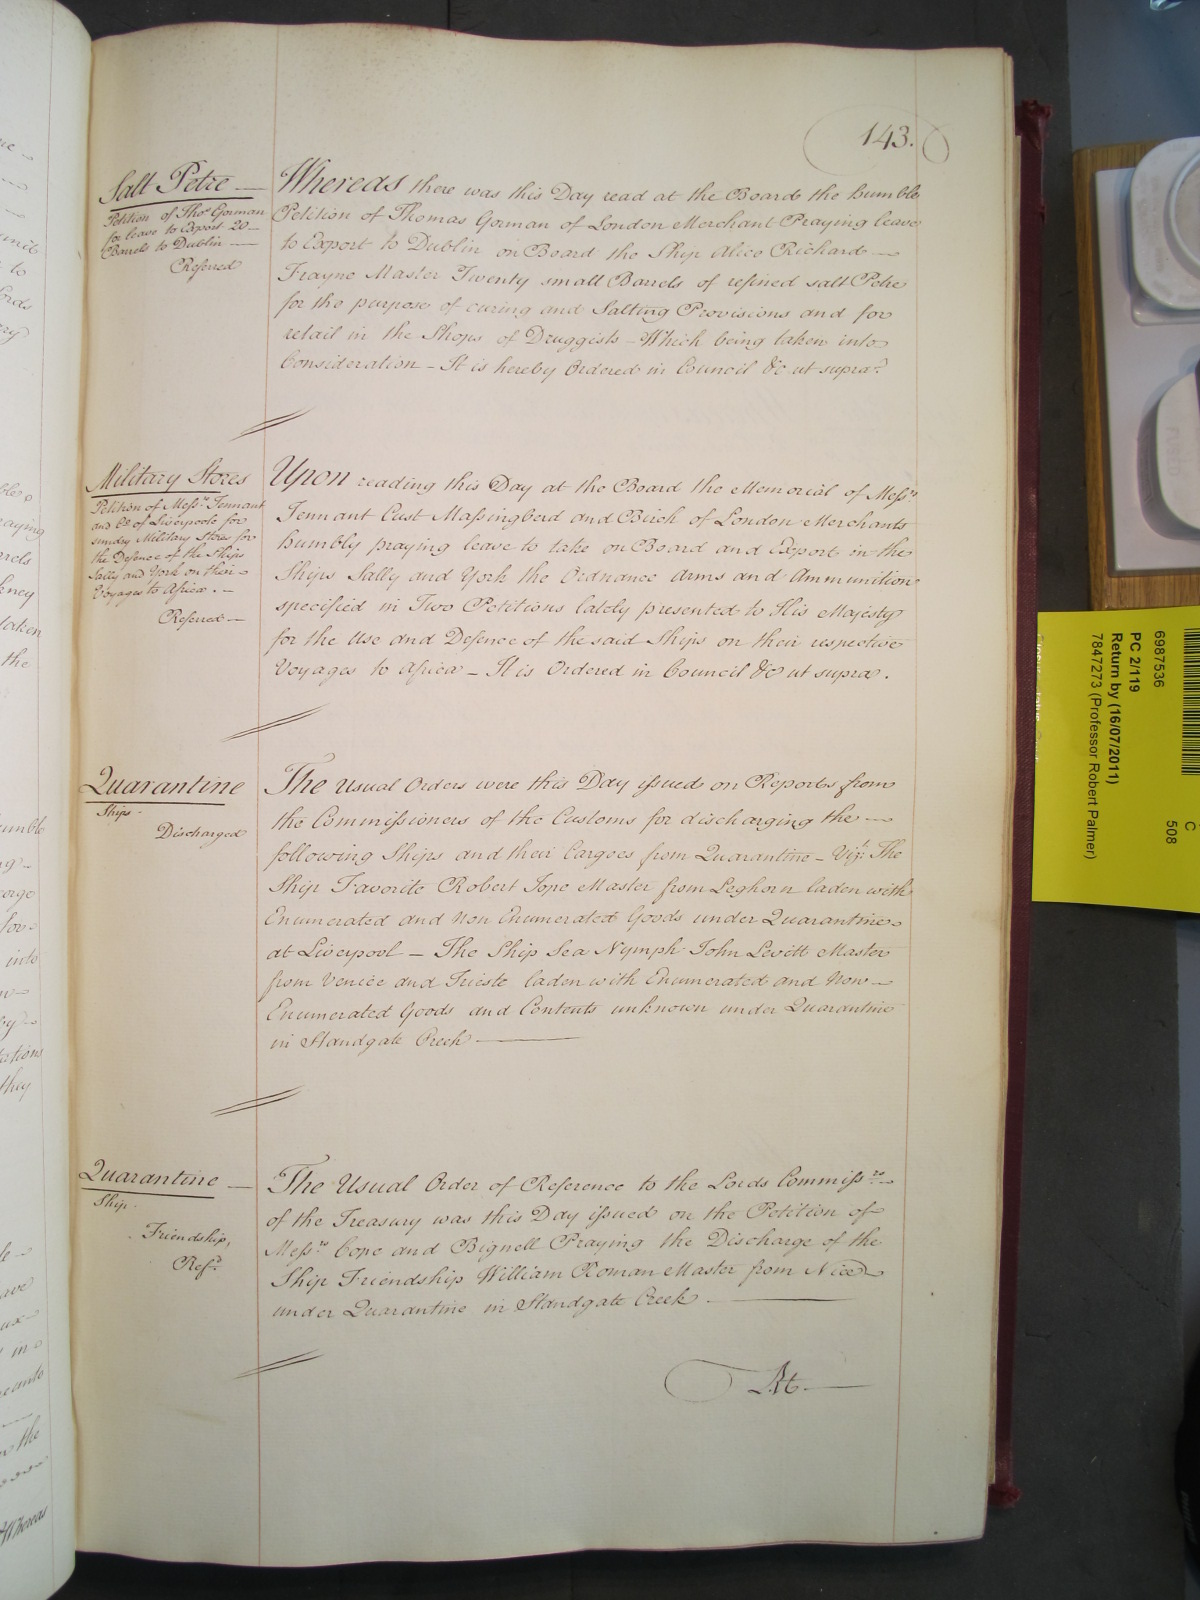 143.
Salt Petre
Petition of Thos. Gorman
for leave to Export 20
Barrels to Dublin
Referred
Whereas there was this Day read at the Board the humble
Petition of Thomas Gorman of London Merchant Praying leave
to Export to Dublin on Board the Ship Alice Richard
Frayne Master Twenty small Barrels of refined salt Petre
for the purpose of curing and Salting Provisions and for
retail in the Shops of Druggists - Which being taken into
Consideration - It is hereby Ordered in Council &c ut supra
Military Stores
Petition of Messrs. Tennant
and Co. of Liverpoole for
sundry Military Stores for
the Defence of the Ships
Sally and York on their
Voyages to Africa.
Referred
Upon reading this Day at the Board the Memorial of Messrs.
Tennant Cust Massingberd and Birch of London Merchants
humbly praying leave to take on Board and Export in the
Ships Sally and York the Ordnance Arms and Ammunition
specified in Two Petitions lately presented to His Majesty
for the Use and Defence of the said Ships on their respective
Voyages to Africa - It is Ordered in Council &c ut supra.
Quarantine
Ships
Discharged
The Usual Orders were this Day issued on Reports from
the Commissioners of the Customs for discharging the
following Ships and their Cargoes from Quarantine - Vizt. The
Ship Favorite Robert Tope Master from Leghorn laden with
Enumerated and Non Enumerated Goods under Quarantine
at Liverpool - The Ship Sea Nymph John Levitt Master
from Venice and Trieste laden with Enumerated and Non
Enumerated Goods and Contents unknown under Quarantine
in Standgate Creek
Quarantine
Ship
Friendship,
Refd.
The Usual Order of Reference to the Lords Commissrs.
of the Treasury was this Day issued on the Petition of
Messrs. Cope and Bignell Praying the Discharge of the
Ship Friendship William Roman Master from Nice
under Quarantine in Standgate Creek.
At
6987536
PC 2/119
Return by (16/07/2011)
7847273 (Professor Robert Palmer)
C
508